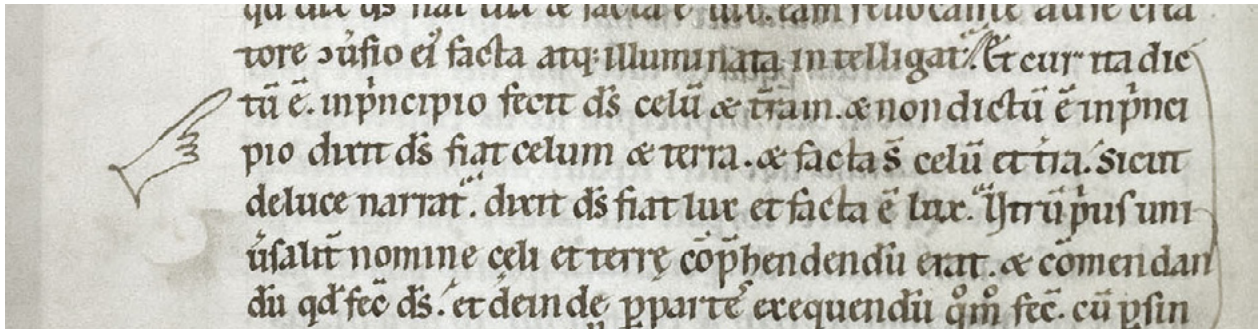 tore ↄũsio ei᷒ facta atq; illuminata intelligat. Et cur ita dic
tũ ẽ. inp̃ncipio fecit d̃s celũ & t̃ram. & non dictũ ẽ inp̃nci
pio dixit d̃s fiat celum & terra. & facta s̃ celũ et t̃ra. sicut
deluce narrat. dixit d̃s fiat lux et facta ẽ lux. Vtrũ p̃us uni
ũsalit̃ nomine celi et terrę cõp̃hendendũ erat. & cõmendan
dũ qd̃ fec̃ d̃s. et deinde ꝑparte exequendũ qͦm̃ fec̃. cũ